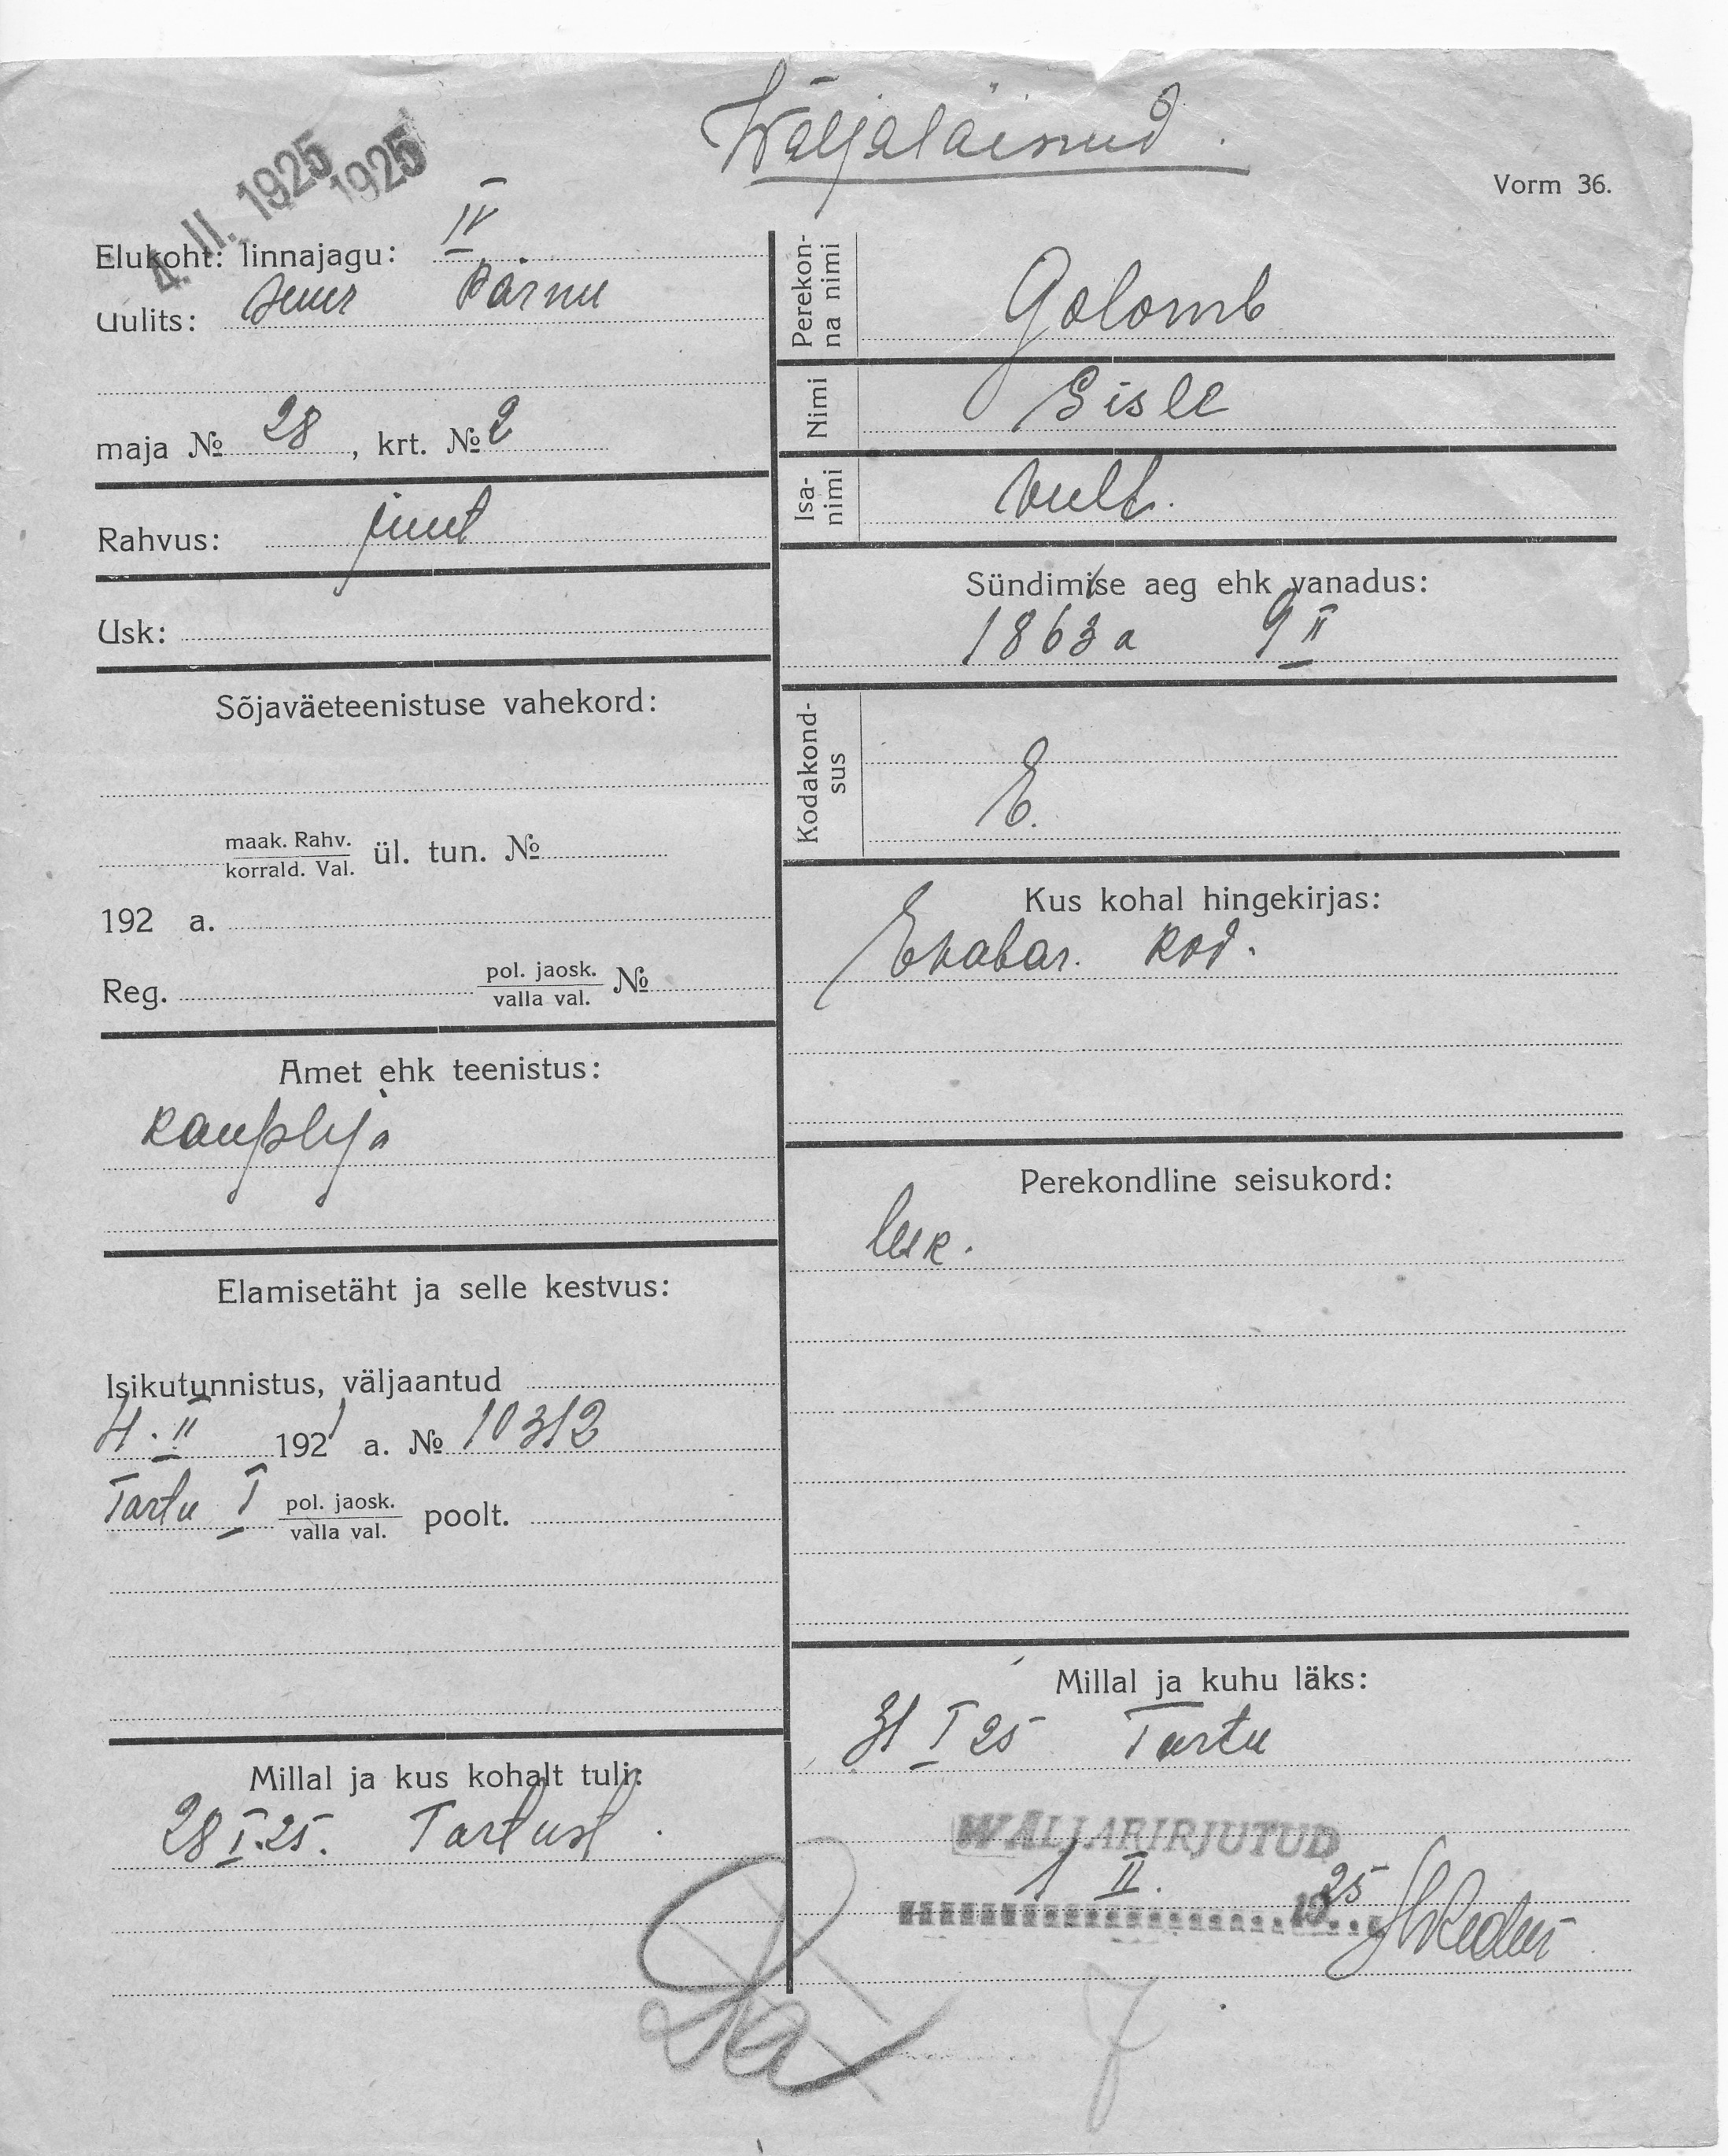 Wäljaläinud.
4. II. 1925
1925
Vorm 36.
Elukoht: linnajagu: IV
Uulits: suur Pärnu
maja № 28, krt. № 2
Rahvus: juut
Usk:
Sõjaväeteenistuse vahekord:
maak. Rahv.
korrald. Val. ül. tun. №
192 a.
Reg. pol. jaosk.
valla val. №
Amet ehk teenistus:
kaupleja
Elamisetäht ja selle kestvus:
Isikutunnistus, väljaantud
4. II 1921 a. № 10312
Tartu I pol. jaosk.
valla val. poolt.
Millal ja kus kohalt tuli:
28 I. 25. Tartust.
Perekon-
na nimi
Golomb
Nimi
Isa-
nimi
Vulf.
Sündimise aeg ehk vanadus:
1863 a 9 II
Kodakond-
sus
E.
Kus kohal hingekirjas:
E. vabar. kod.
Perekondline seisukord:
lesk.
Millal ja kuhu läks:
31 I 25 Tartu
WÄLJAKIRJUTUD
1 II. 1925